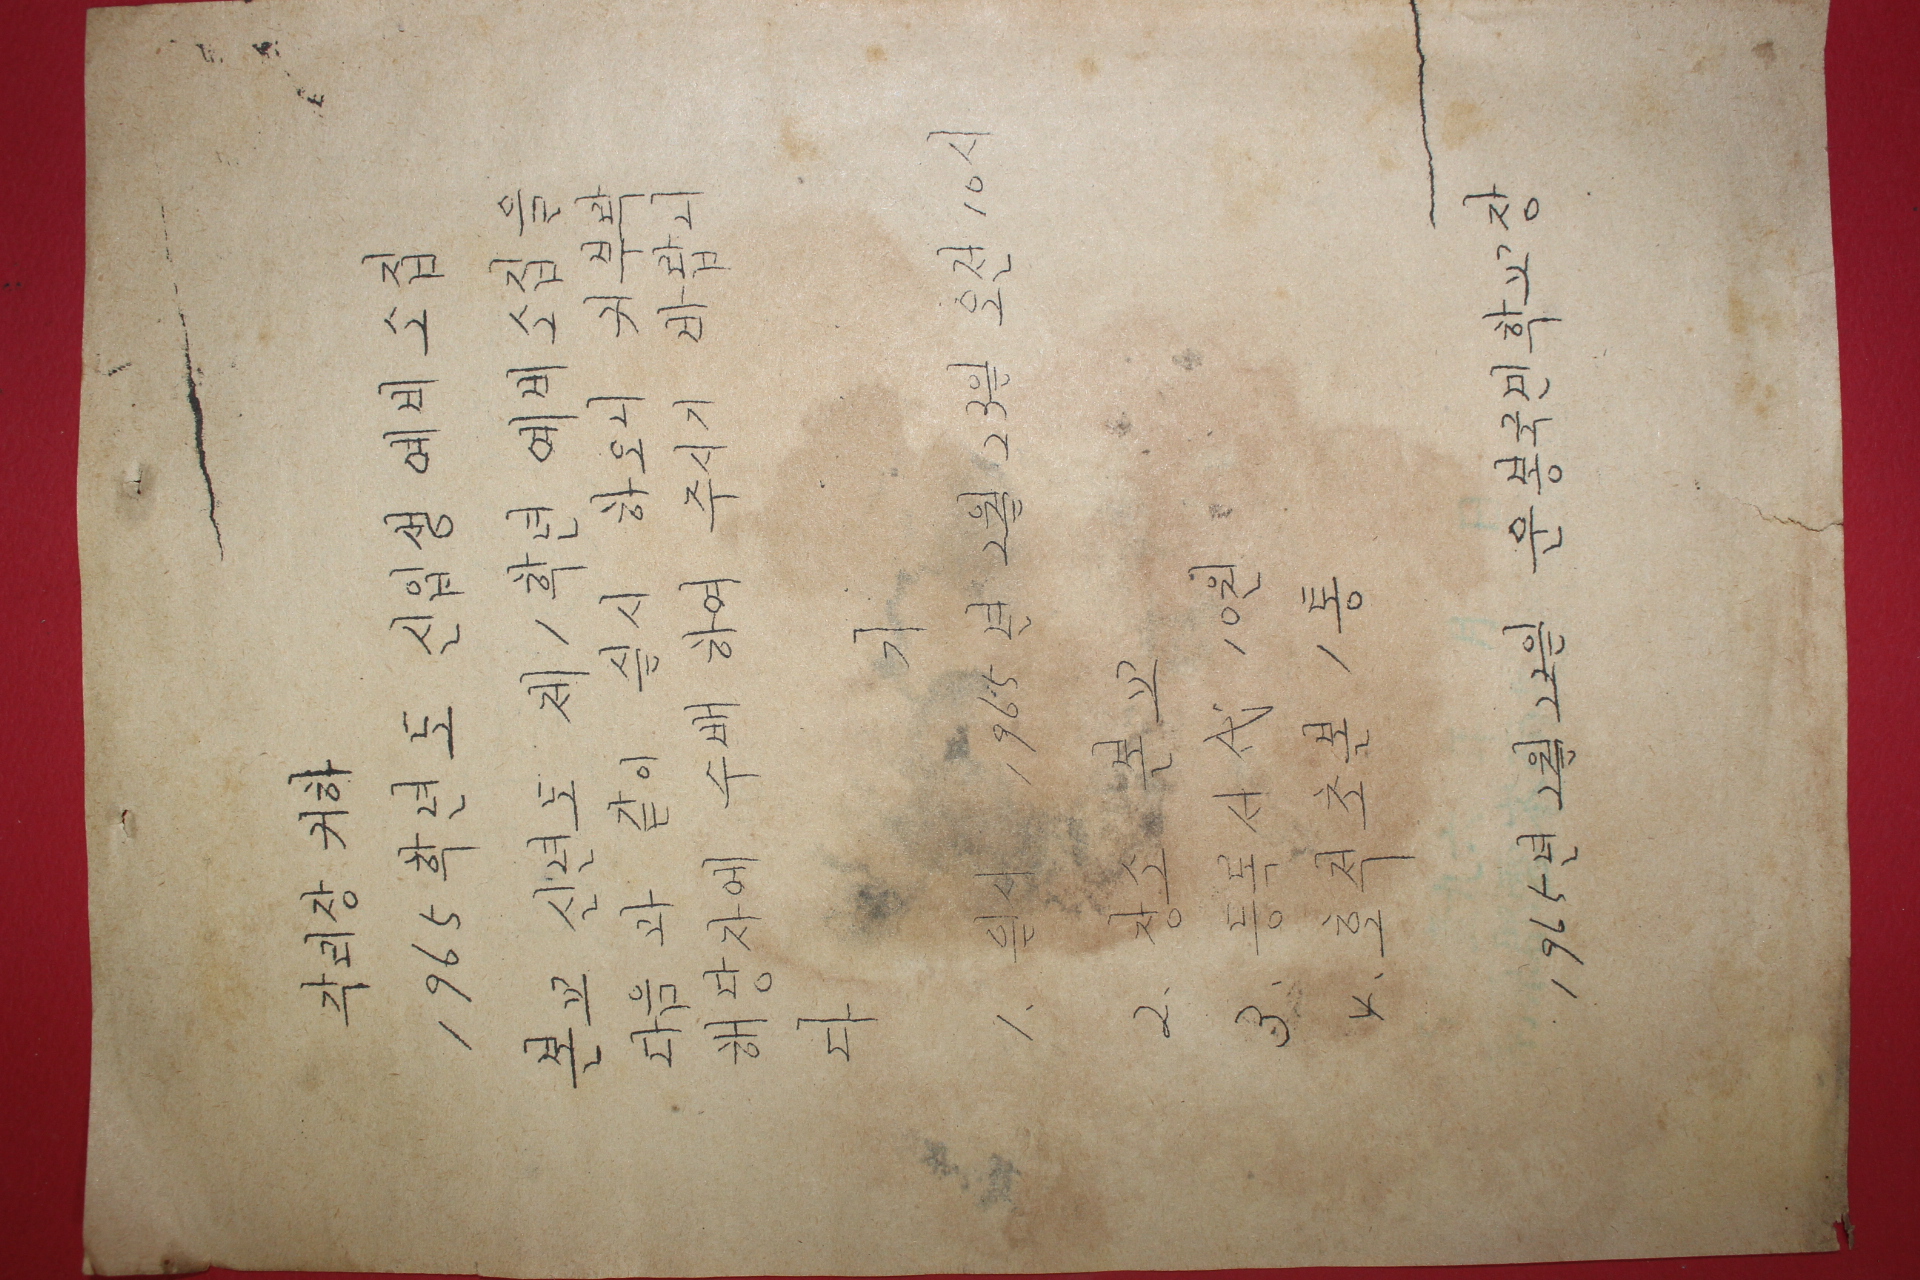 각리장 귀하
1965학년도 신입생 예비 소집
본교 신년도 제1학년 예비 소집을
다음과 같이 실시 하오니 귀 부락
해당자에 수배하여 주시기 바랍니
다
기
1. 일시 1965년 2월 23일 오전 10시
2. 장소 본교
3. 등록서代 10원
4. 호적초본 1통
1965년 2월 22일 은봉국민학교장